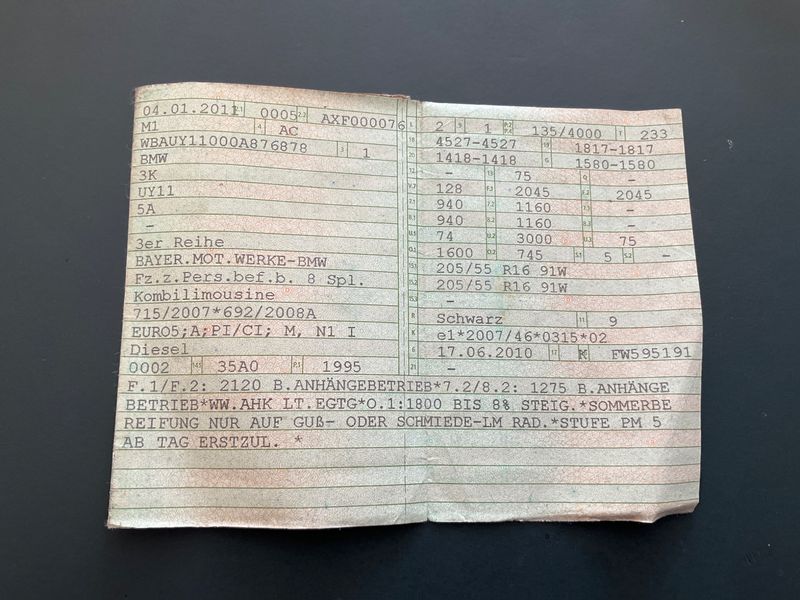 04.01.2011 2.1 0005 2.2 AXF000076
M1 4 AC
WBAUY11000A876878 3 1
BMW
3K
UY11
5A
–
3er Reihe
BAYER.MOT.WERKE-BMW
Fz.z.Pers.bef.b. 8 Spl.
Kombilimousine
715/2007*692/2008A
EURO5;A;PI/CI; M, N1 I
Diesel
0002 35A0 P.1 1995
L 2 9 1 135/4000 T 233
18 4527-4527 19 1817-1817
20 1418-1418 G 1580-1580
12 – 13 75 Q –
V.7 128 F.1 2045 F.2 2045
7.1 940 7.2 1160 7.3 –
8.1 940 8.2 1160 8.3 –
U.1 74 U.2 3000 U.3 75
O.1 1600 O.2 745 S.1 5 S.2 –
15.1 205/55 R16 91W
15.2 205/55 R16 91W
15.3 –
R Schwarz 11 9
K e1*2007/46*0315*02
6 17.06.2010 17 K FW595191
21 –
F.1/F.2: 2120 B.ANHÄNGEBETRIEB*7.2/8.2: 1275 B.ANHÄNGE
BETRIEB*WW.AHK LT.EGTG*O.1:1800 BIS 8% STEIG.*SOMMERBE
REIFUNG NUR AUF GUß- ODER SCHMIEDE-LM RAD.*STUFE PM 5
AB TAG ERSTZUL. *